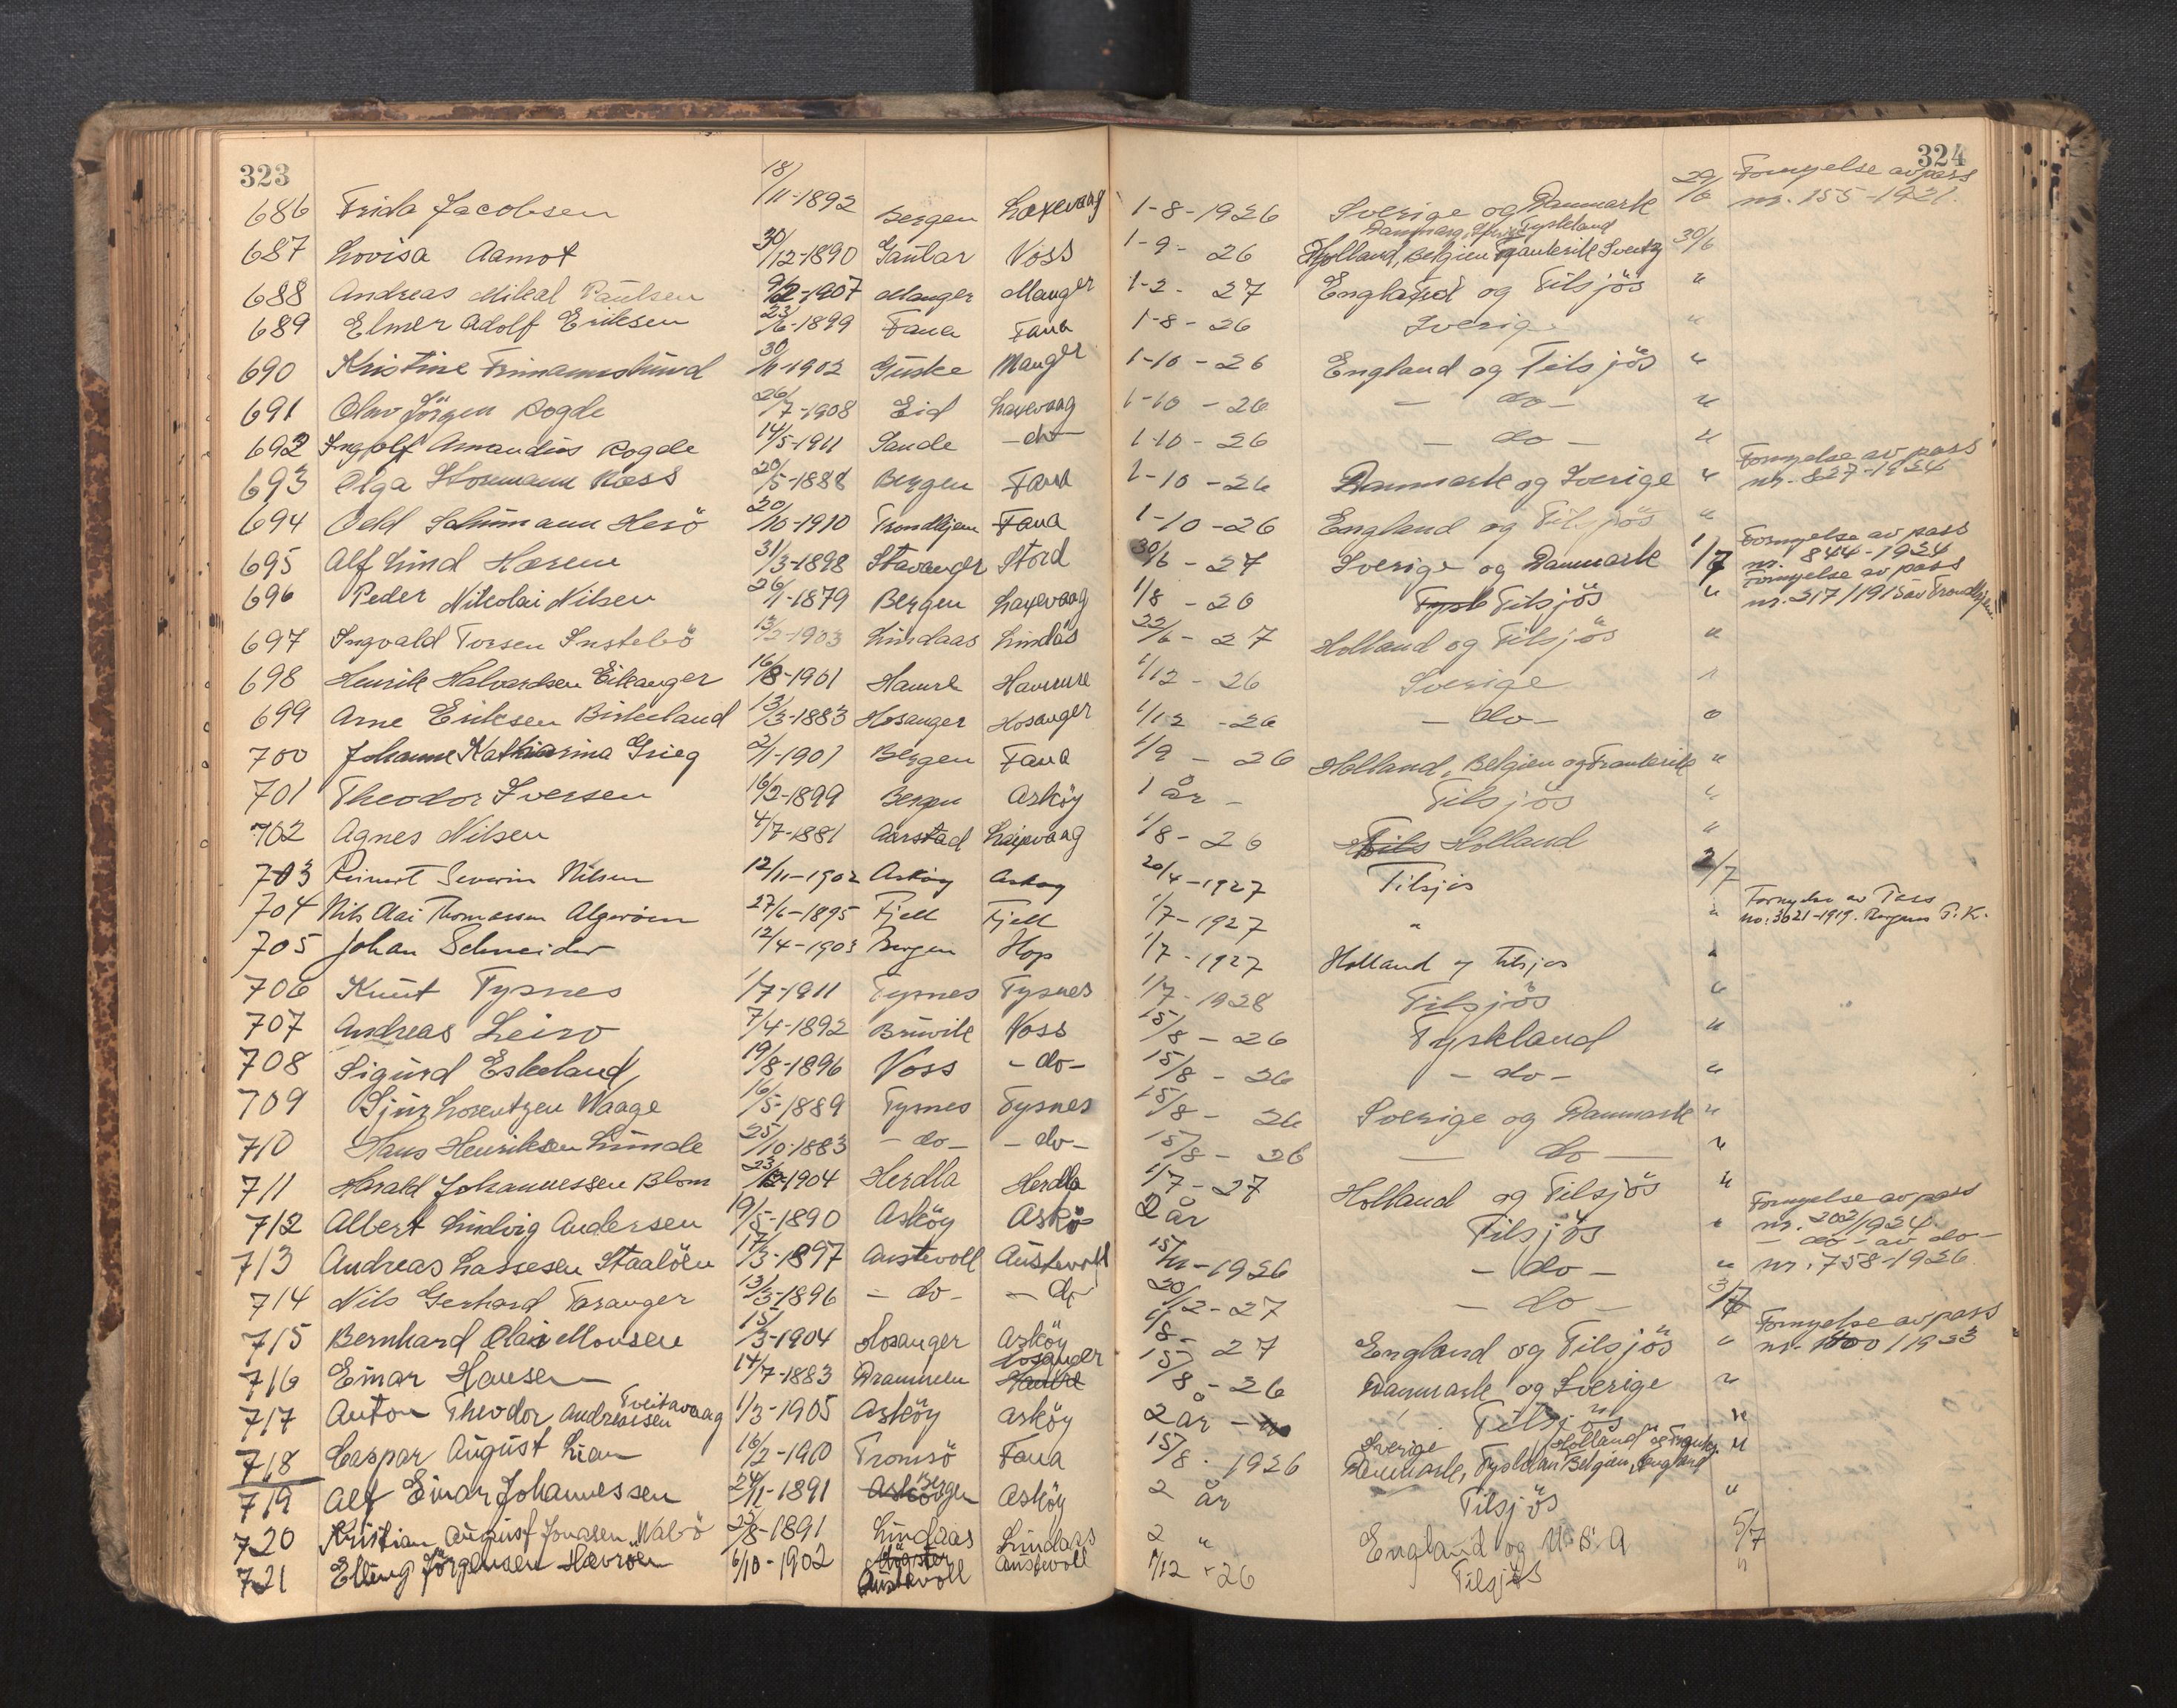 323 324
686 Frida Jacobsen 18/11-1892 Bergen Laxevaag 1-8-1926 Sverige og Danmark 29/6 Fornyelse av pass nr. 155-1921.
687 Lovisa Aamot 30/12-1890 Gaular Voss 1-9-26 Danmark, Tyskland Holland, Belgien Frankrik Sveitz 30/6
688 Andreas Mikal Paulsen 9/2-1907 Manger Manger 1-2-27 England og Tilsjös "
689 Elmer Adolf Eriksen 23/6-1899 Fana Fana 1-8-26 Sverige "
690 Kristine Frimannslund 30/11-1902 Giske Manger 1-10-26 England og Tilsjös "
691 Olav Jörgen Rogde 26/7-1908 Eid Laxevaag 1-10-26 - do - "
692 Ingolf Amandus Rogde 14/5-1911 Sande - do - 1-10-26 - do - "
693 Olga Hosmann Næss 20/5-1888 Bergen Fana 1-10-26 Danmark og Sverige " Fornyelse av pass nr. 827-1924
694 Odd Schumann Herö 20/10-1910 Trondhjem Fana 1-10-26 England og Tilsjös "
695 Alf Lind Hærem 31/3-1898 Stavanger Stord 30/6-27 Sverige og Danmark 1/7 Fornyelse av pass nr. 844-1924
696 Peder Nikolai Nilsen 26/1-1879 Bergen Laxevaag 1/8-26 Tysk Tilsjös " Fornyelse av pass nr. 217/1915 av Trondhjem
697 Ingvald Torsen Instebö 13/2-1903 Lindaas Lindås 22/6-27 Holland og Tilsjös "
698 Henrik Halvardsen Eikanger 16/8-1901 Hamre Hammre 1/12-26 Sverige "
699 Arne Eriksen Birkeland 13/3-1883 Hosanger Hosanger 1/12-26 - do - "
700 Johanne Katharina Grieg 2/1-1901 Bergen Fana 1/9-26 Holland, Belgien og Frankrik "
701 Theodor Iversen 16/2-1899 Bergen Asköy 1 år - Tilsjös "
702 Agnes Nilsen 4/7-1881 Aarstad Laxevaag 1/8-26 Tils Holland "
703 Reinert Severin Nilsen 12/11-1902 Asköy Asköy 20/4-1927 Tilsjös 2/7
704 Nils Olai Thomassen Algeröen 27/6-1895 Fjell Fjell 1/7-1927 " " Fornyelse av Pass no: 3021-1919. Bergens P.K.
705 Johan Schneider 12/4-1903 Bergen Hop 1/7-1927 Holland og tilsjøs "
706 Knut Tysnes 1/7-1911 Tysnes Tysnes 1/7-1928 Tilsjös "
707 Andreas Leiro 7/4-1892 Bruvik Voss 15/8-26 Tyskland "
708 Sigurd Eskeland 19/8-1896 Voss - do - 15/8-26 - do - "
709 Sjur Lorentzen Waage 16/5-1889 Tysnes Tysnes 15/8-26 Sverige og Danmark "
710 Hans Henriksen Lunde 25/10-1883 - do - - do - 15/8-26 - do - "
711 Harald Johannessen Blom 23/12-1904 Herdla Herdla 1/7-27 Holland og Tilsjös "
712 Albert Ludvig Andersen 19/5-1890 Asköy Askö 2 år Tilsjös " Fornyelse av pass nr. 202/1924
713 Andreas Lassesen Staalöen 17/3-1897 Austevoll Austevoll 15/11-1926 - do - " - do - av do - nr. 758-1926
714 Nils Gerhard Taranger 13/3-1896 - do - - do - 20/12-27 - do - 3/7
715 Bernhard Olai Monsen 15/3-1904 Hosanger Asköy 1/8-27 England og Tilsjös " Fornyelse av pass nr. 1600/1923
716 Einar Hansen 14/7-1883 Drammen Hosanger Hamre 15/8-26 Danmark og Sverige "
717 Anton Theodor Andreassen Tveitavaag 1/3-1905 Asköy Asköy 2 år - Tilsjös "
718 Caspar August Lian 16/2-1910 Tromsö Fana 15/8-1926 Sverige Holland og Frankr. Danmark, Tysklan Belgien, England "
719 Alf Einar Johannessen 24/11-1891 Asköy Bergen Asköy 2 år Tilsjös "
720 Kristian August Jonasen Walö 23/8-1891 Lindaas Lindaas 2 " England og U.S.A 5/7
721 Elling Jörgensen Hevröen 6/10-1902 Austevoll Austevoll 1/12-26 Tilsjös "